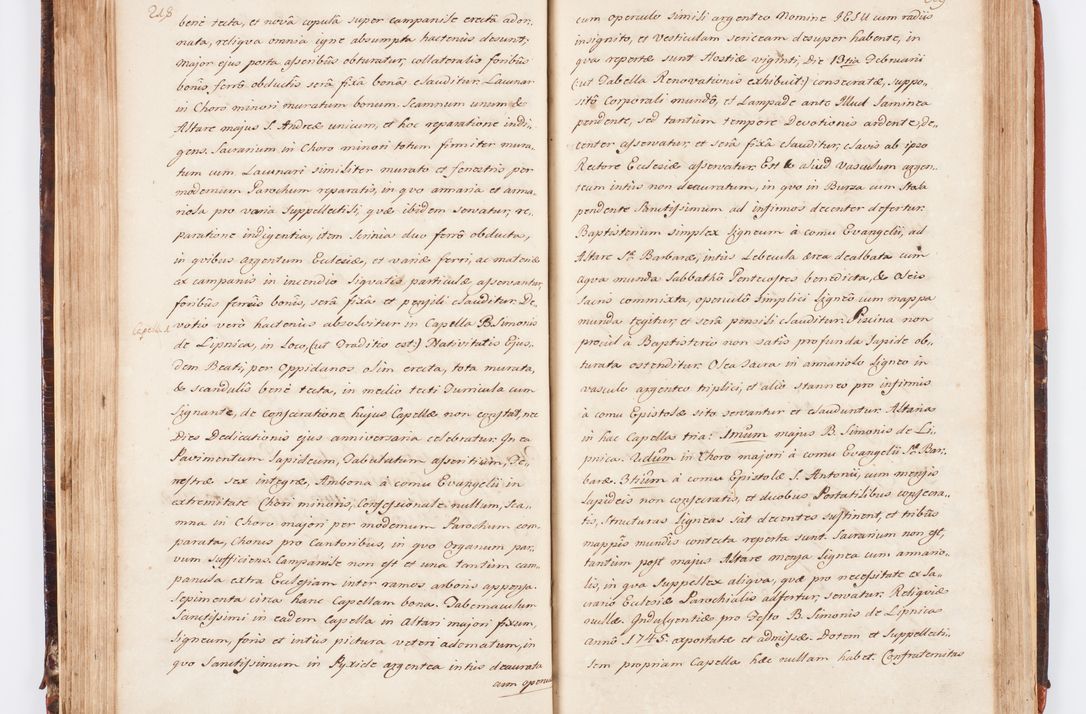 218
benè tecta, et novâ copulâ super campanile erectâ ador-
nata, reliqva omnia igne absumpta hactenùs desunt;
major ejus porta asseribûs obturatur, collateralis foribûs
bonis, ferrô obductis serâ fixâ bonâ clauditur. Lacunar
in Choro minori muratum bonum. Scamnum unum &
Altare majus S. Andreæ unicum, et hoc reparatione indi-
gens. Sacrarium in Choro minori totum firmiter mura-
tum cum Lacunari similiter murato et fenestris per
modernum Parochum reparatis, in qvo armaria et arma-
riola pro varia Suppellectili, qvæ ibidem servatur, re-
paratione indigentia, item Scrinia duo ferrô obducta,
in qvibus argentum Ecclesiæ, et variæ ferri, ac materiæ
ex campanis in incendio liqvatis particulæ asservantur,
foribûs ferreis bonis, serâ fixâ et pensili clauditur. De-
votio verò hactenùs absolvitur in Capella B. Simonis
Capella 1.
de Lipnica, in Loco, (ut Traditio est:) Nativitatis Ejus-
dem Beati, per Oppidanos olim erecta, tota murata,
& scandulis benè tecta, in medio tecti Turricula cum
Signante, de consecratione hujus Capellæ non constat, nec
Dies Dedicationis ejus anniversaria celebratur. In ea
Pavimentum Lapideum, Tabulatum asseritium, Fe-
nestræ sex integræ, Ambona à cornu Evangelii in
extremitate Chori minoris, Confessionale nullum, Sca-
mna in Choro majori per modernum Parochum com-
parata, Chorus pro Cantoribus, in qvo Organum par-
vum Sufficiens. Campanile non est et una tantùm cam-
panula extra Ecclesiam inter ramos arboris appensa.
Sepimenta circa hanc Capellam bona. Tabernaculum
Sanctissimi in eadem Capella in Altari majori fixum,
Ligneum, foris et intùs pictura veteri adornatum, in
qvo Sanctissimum in Pyxide argentea intùs deaurata
cum operculo
cum operculo simili argenteo Nomine IESU cum radiis
insignito, et Vesticulam sericeam desuper habente, in
qva repertæ sunt Hostiæ viginti, Die 13tia Februarii
(:ut Tabella Renovationis exhibuit:) consecratæ, suppo-
sitô Corporali mundô, et Lampade ante Illud laminea
pendente, sed tantùm tempore Devotionis ardente, de-
center asservatur, et serâ fixâ clauditur, clavis ab ipso
Rectore Ecclesiæ asservatur. Est & aliud Vasculum argen-
teum intùs non deauratum, in qvo in Bursa cum Stola
pendente Sanctissimum ad infirmos decenter defertur.
Baptisterium simplex ligneum à cornu Evangelii, ad
Altare Stæ Barbaræ, intùs Lebecula ærea dealbata cum
aqva munda Sabbathô Pentecostes benedicta, & Oleis
Sacris commixta, operculô Simplici Ligneô cum mappa
munda tegitur, et serâ pensili clauditur. Piscina non
procul à Baptisterio non satis profunda lapide ob-
turata ostenditur. Olea Sacra in armariolo Ligneo in
vasculo argenteo triplici, et alio stanneo pro infirmis
à cornu Epistolæ sito servantur et clauduntur. Altaria
in hac Capella tria: Imum majus B. Simonis de Li-
pnica. IIdum in Choro majori à cornu Evangelii Stæ Bar-
baræ. 3tium à cornu Epistolæ S. Antonii, cum mensis
Lapideis non consecratis, et duobus Portatilibus consecra-
tis, Structuras Ligneas sat decentes sustinent, et tribûs
mappis mundis contecta reperta sunt. Sacrarium non est,
tantùm post majus Altare mensa Lignea cum armario-
lis, in qva Suppellex aliqva, qvæ pro necessitate ex Sa-
crario Ecclesiæ Parochialis adfertur, servatur. Reliqviæ
nullæ. Indulgentiæ pro Festo B. Simonis de Lipnica
annô 1745. exportatæ et admissæ. Dotem et Suppellecti-
lem propriam Capella hæc nullam habet. Confraternitas